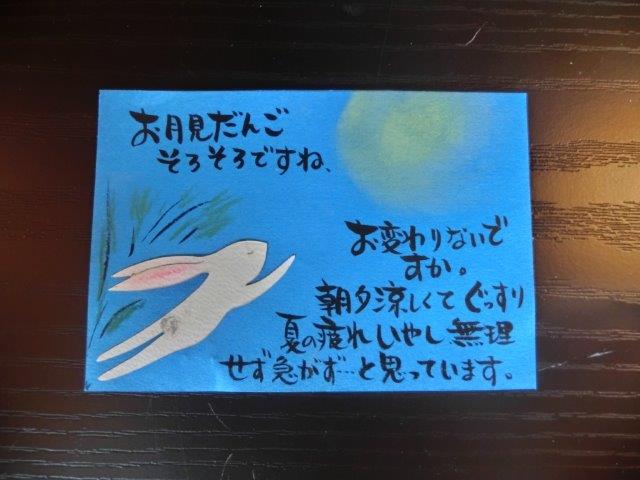 お月見だんご
そろそろですね、
お変わりないで
すか。
朝夕涼しくて ぐっすり
夏の疲れ いやし 無理
せず急がず…と思っています。